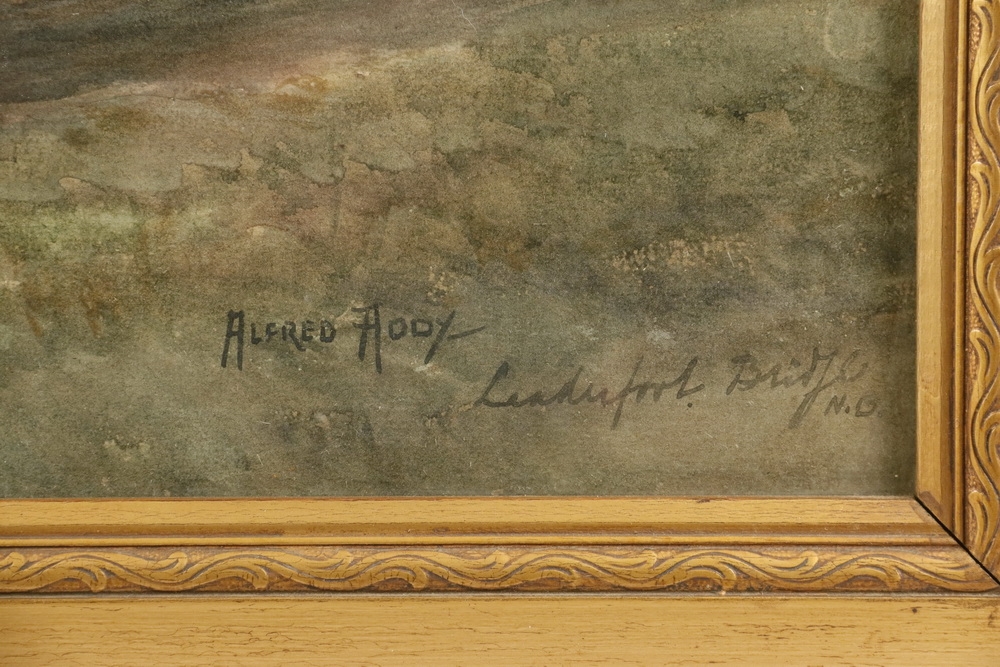 ALFRED AODY
Leaderfoot Bridge
N.B.